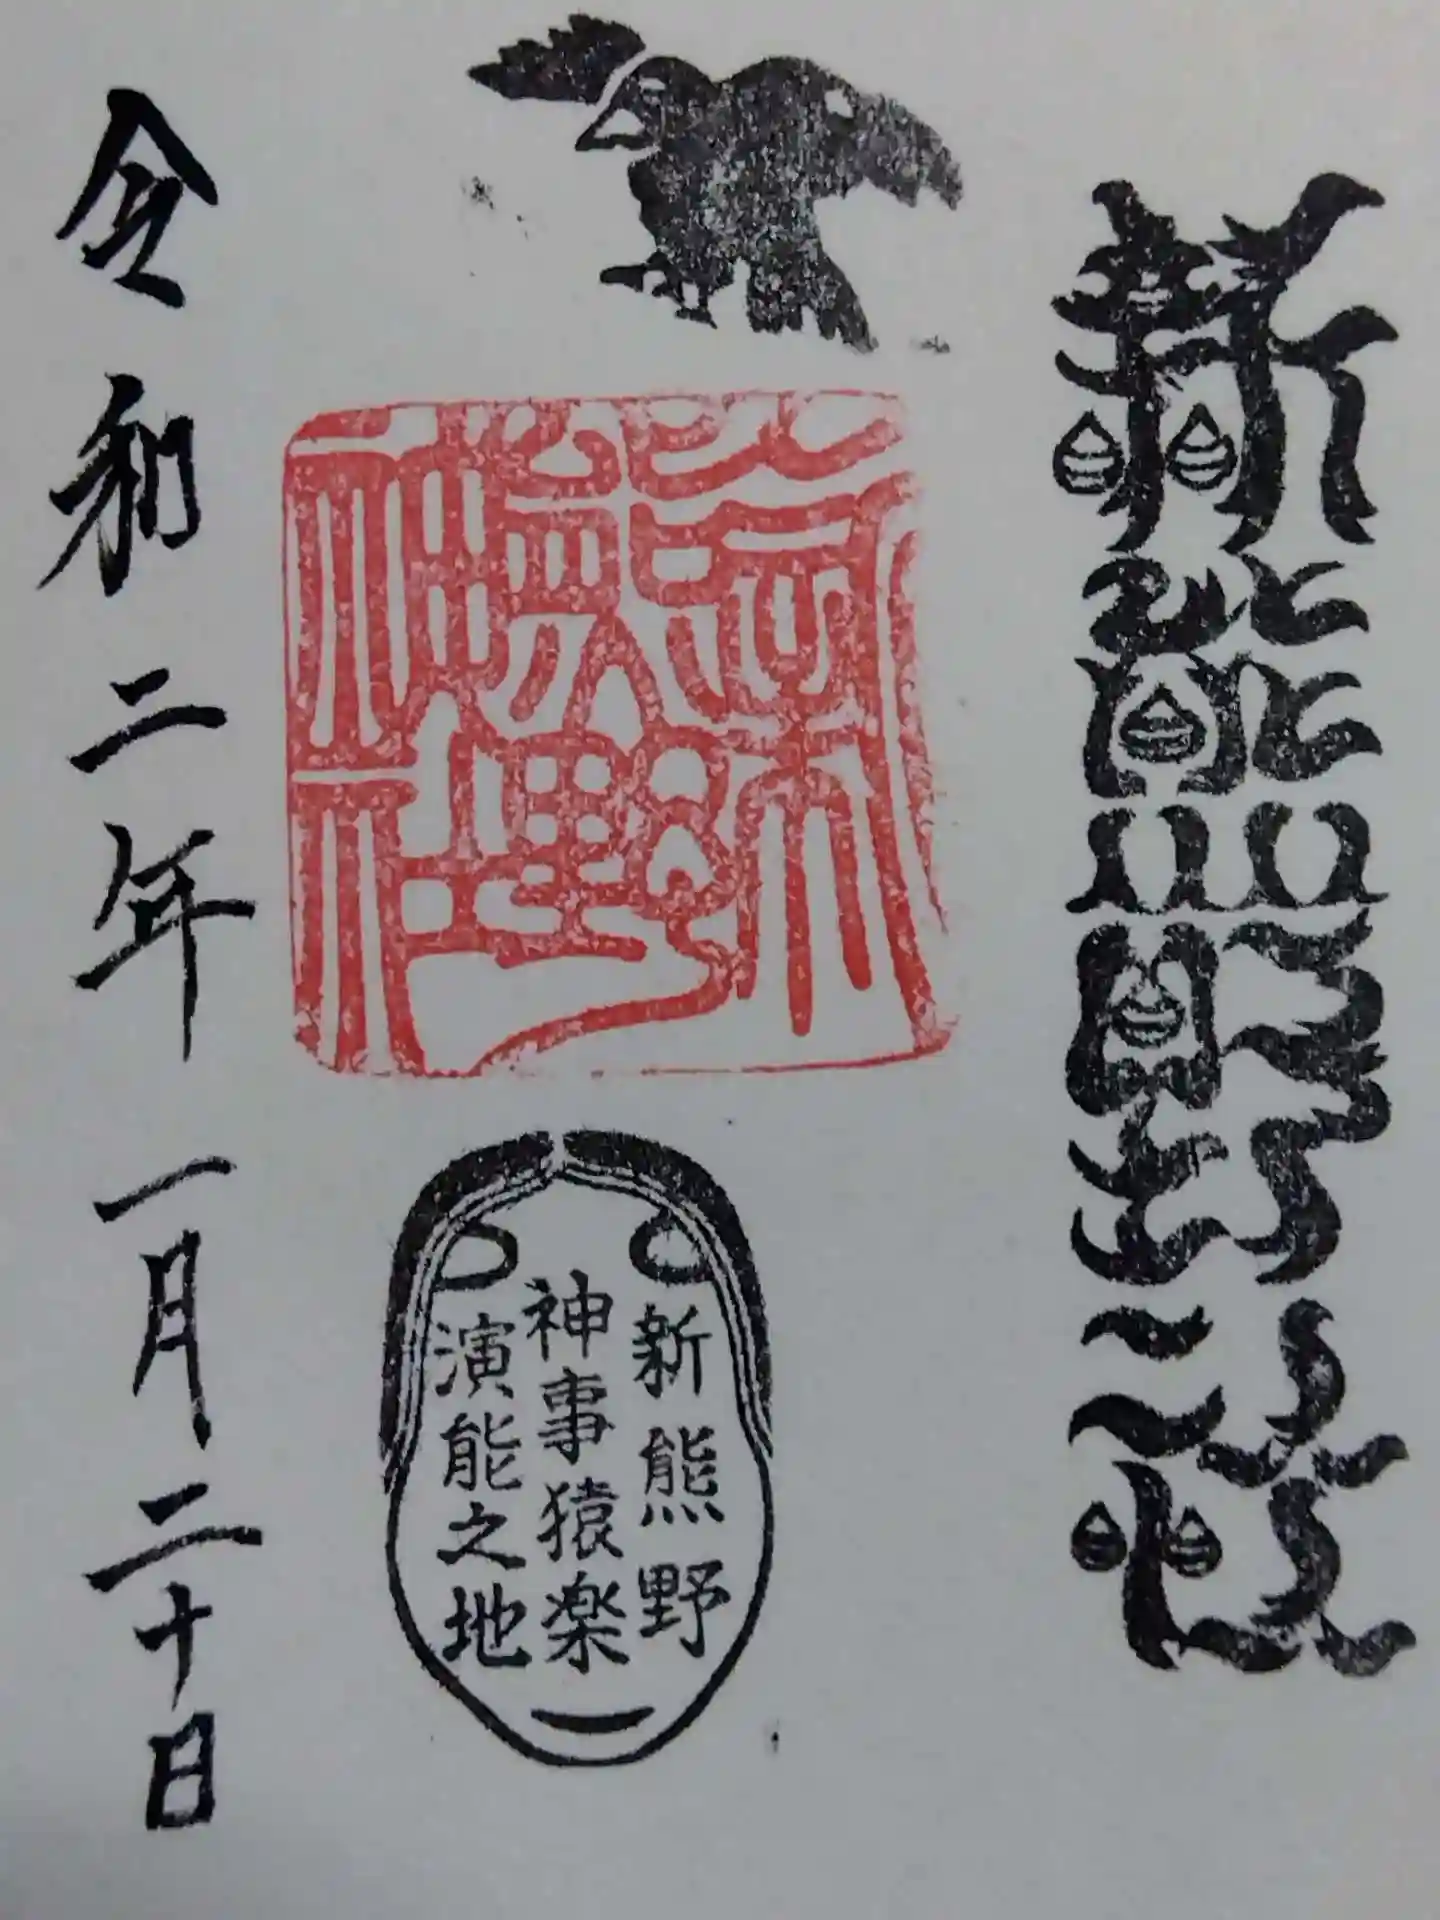 新熊野社
新熊野神社
新熊野
神事猿楽
演能之地
令和二年一月二十日